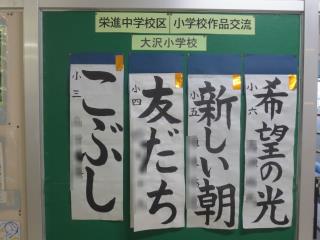 栄進中学校区 小学校作品交流
大沢小学校
小六
希望の光
小五
新しい朝
小四
友だち
小三
こぶし